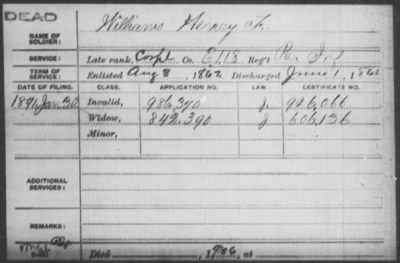 DEAD
Williams Henry F.
NAME OF SOLDIER:
SERVICE: Late rank, Corpl Co. E, 118 Reg't Pa Inf
TERM OF SERVICE: Enlisted Aug 8, 1862 Discharged June 1, 186
DATE OF FILING. CLASS. APPLICATION NO. LAW. CERTIFICATE NO.
1891 Jan 30 Invalid, 986,390 J. 926,066
Widow, 842,390 J 606,136
Minor,
ADDITIONAL SERVICES:
REMARKS:
Died , 1906, at